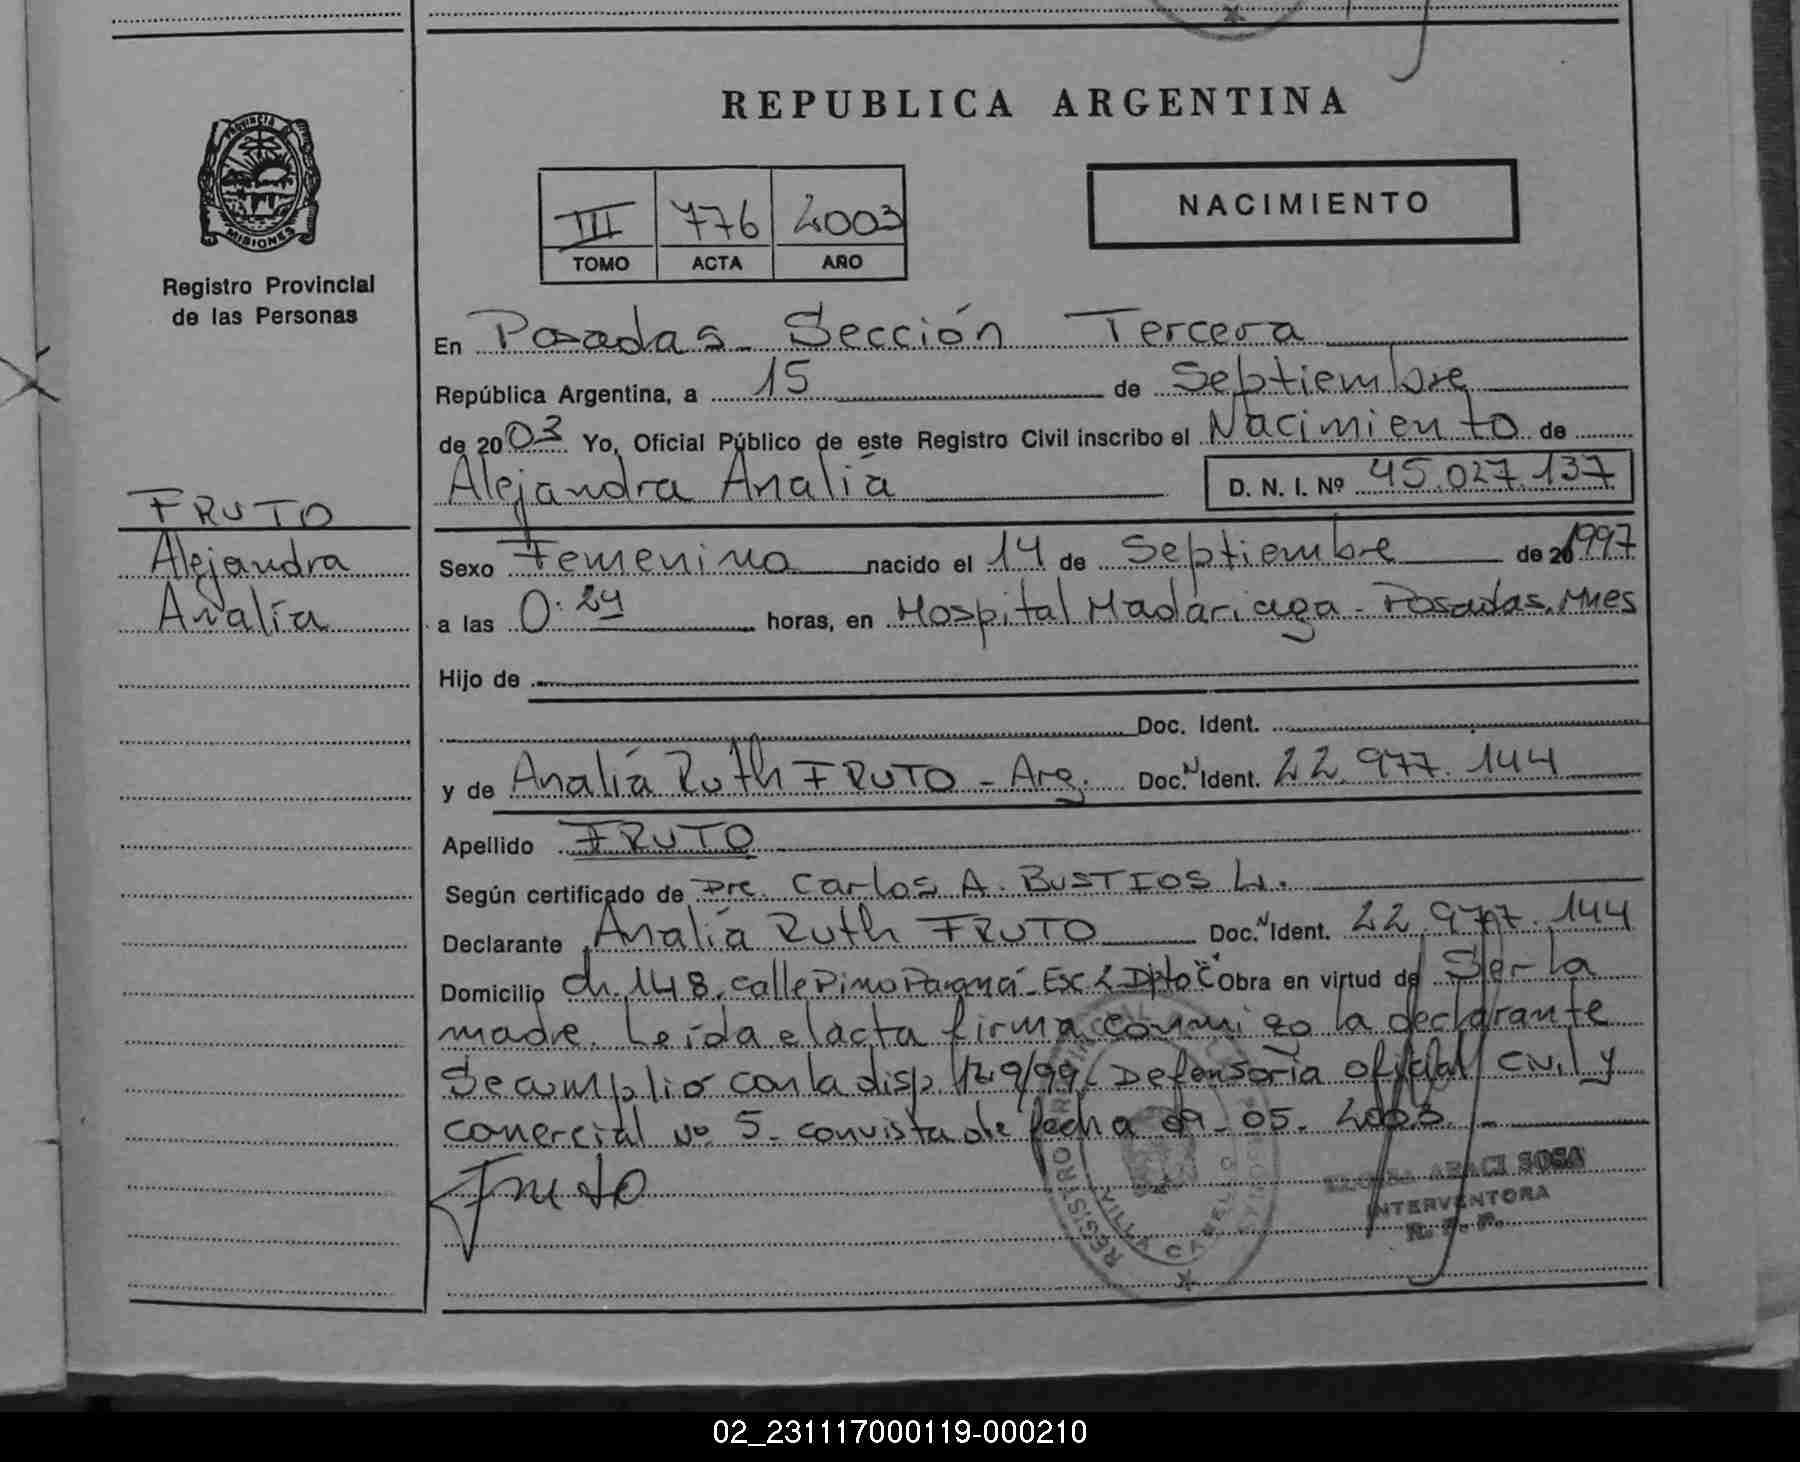 REPUBLICA ARGENTINA
PROVINCIA DE
MISIONES
Registro Provincial
de las Personas
III 776 2003
TOMO ACTA AÑO
NACIMIENTO
En Posadas Sección Tercera
República Argentina, a 15 de Septiembre
de 2003 Yo, Oficial Público de este Registro Civil inscribo el Nacimiento de
Alejandra Analía D. N. I. Nº 45.027.137
FRUTO
Alejandra
Analía
Sexo Femenino nacido el 14 de Septiembre de 20 1997
a las 0:24 horas, en Hospital Madariaga - Posadas. Mnes
Hijo de
Doc. Ident.
y de Analía Ruth FRUTO - Arg. Doc. N Ident. 22.977.144
Apellido FRUTO
Según certificado de Dre. Carlos A. BUSTIOS L.
Declarante Analía Ruth FRUTO Doc. N Ident. 22.977.144
Domicilio ch. 148. calle Pino Paraná - Esc 2 Dpto "C" Obra en virtud de Ser la
madre. Leída el acta firma conmigo la declarante
Se cumplio con la disp 129/99. Defensoría oficial Civil y
comercial Nº 5. con vista de fecha 09-05-2003.-
Fruto
REGISTRO PROVINCIAL
VILLA CABELLO
SOSA
INTERVENTORA
R. P. P.
02_231117000119-000210